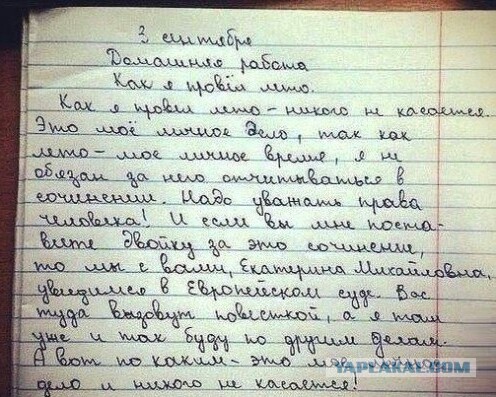 3 сентября
Домашняя работа
Как я провёл лето.
Как я провёл лето - никого не касается.
Это моё личное дело, так как
лето - мое личное время, я не
обязан за него отчитываться в
сочинении. Надо уважать права
человека! И если вы мне поста-
вите двойку за это сочинение,
то мы с вами, Екатерина Михайловна,
увидимся в Европейском суде. Вас
туда вызовут повесткой, а я там
уже и так буду по другим делам.
А вот по каким - это мое личное
YAPLAKAL.COM
дело и никого не касается!